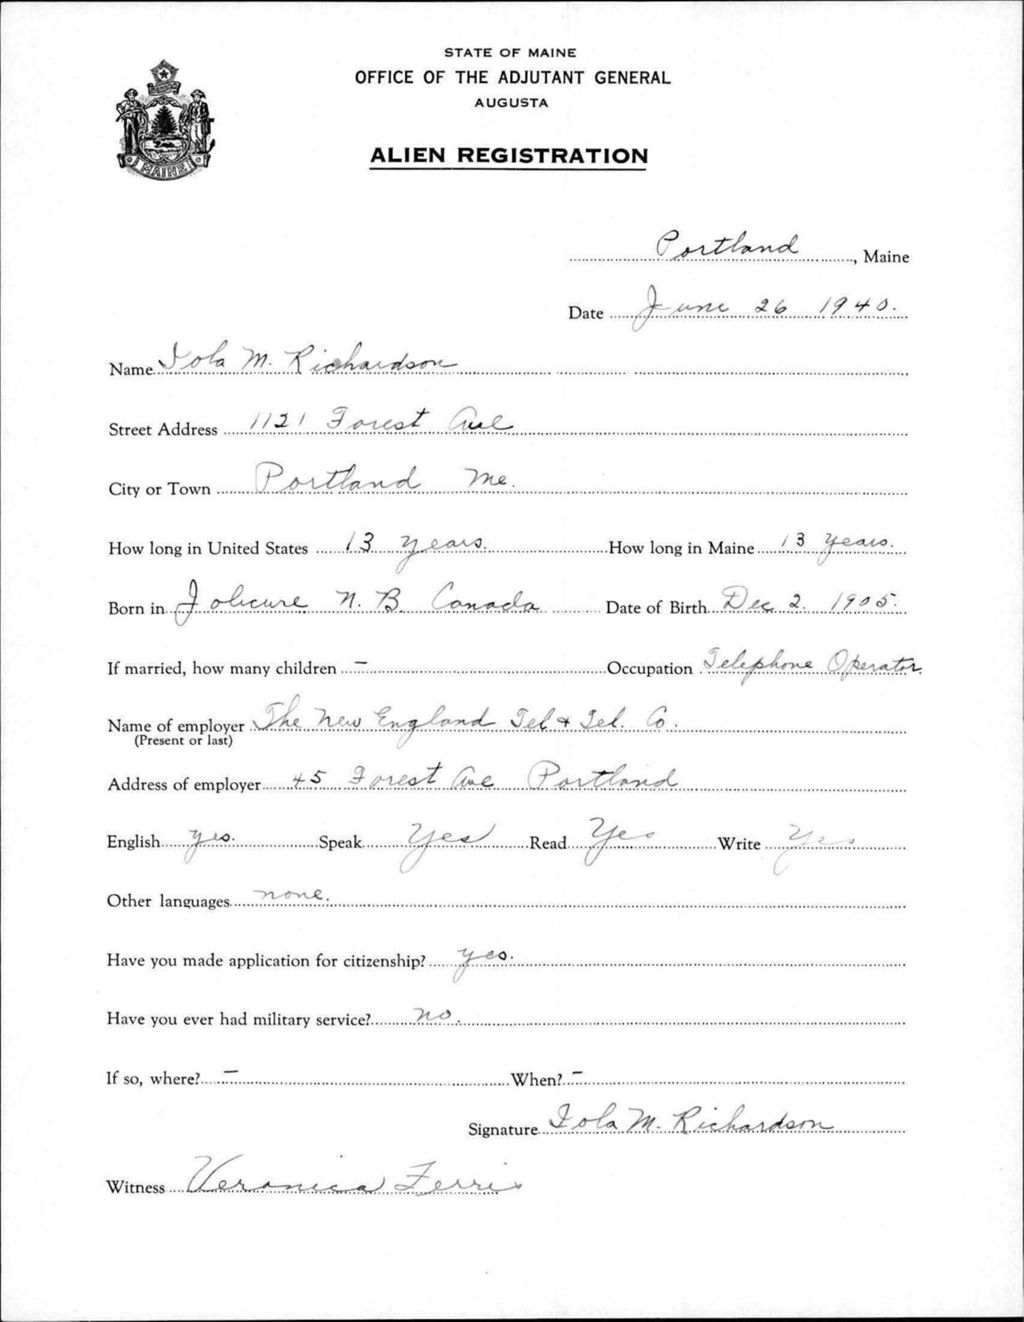 STATE OF MAINE
OFFICE OF THE ADJUTANT GENERAL
AUGUSTA
ALIEN REGISTRATION
MAINE
Portland, Maine
Date June 26 1940.
Name Iola M. Richardson
Street Address 1121 Forest Ave
City or Town Portland Me.
How long in United States 13 years. How long in Maine 13 years.
Born in Jolicure N. B. Canada Date of Birth Dec 2. 1905.
If married, how many children – Occupation Telephone Operator.
Name of employer The New England Tel & Tel. Co.
(Present or last)
Address of employer 45 Forest Ave Portland
English yes. Speak Yes Read Yes Write Yes
Other languages none.
Have you made application for citizenship? yes.
Have you ever had military service? no.
If so, where? – When? –
Signature Iola M. Richardson
Witness Veronica Ferris